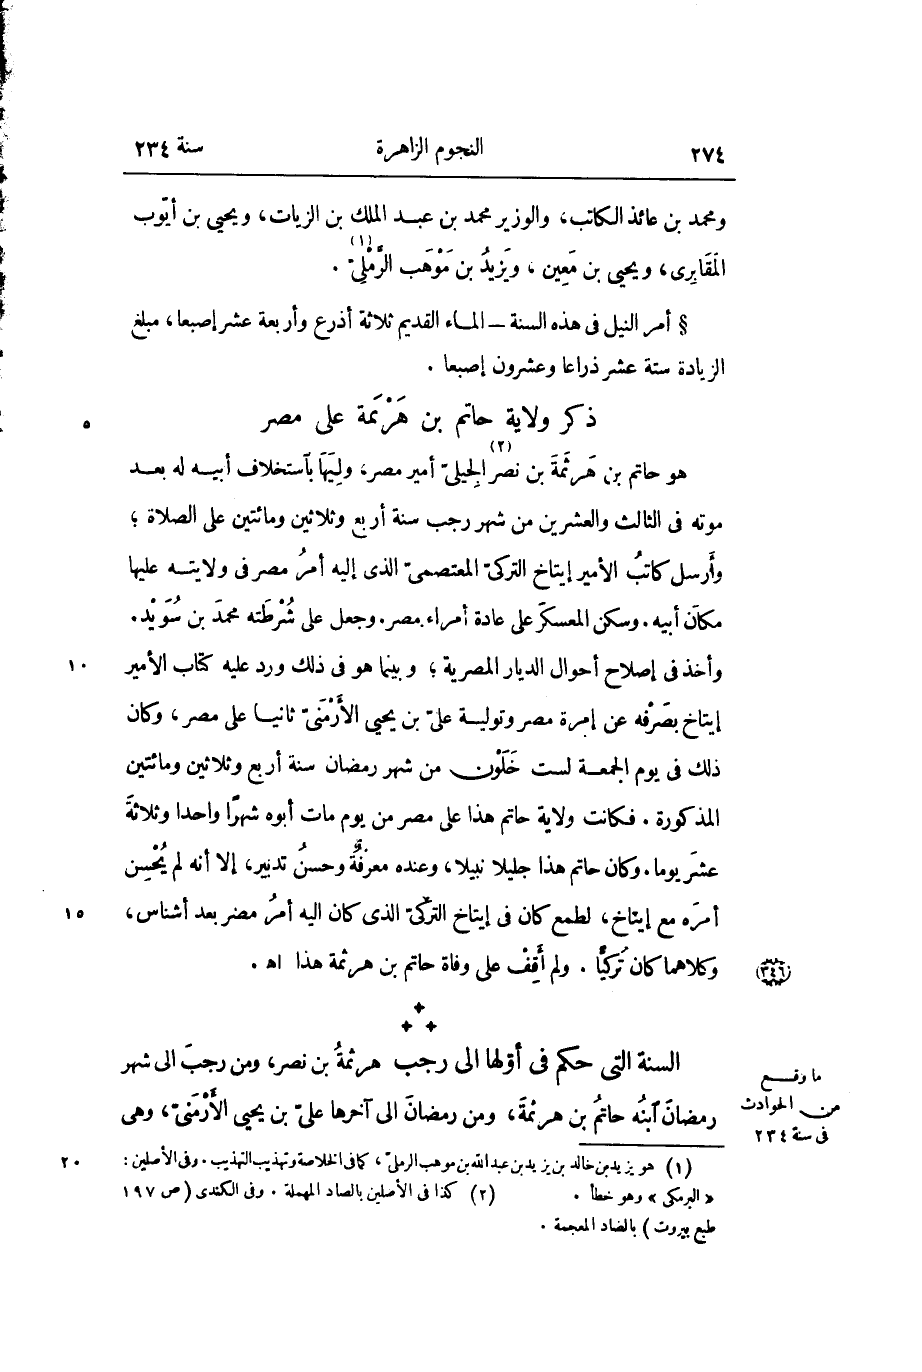 ٢٧٤ النجوم الزاهرة سنة ٢٣٤
ومحمد بن عائذ الكاتب، والوزير محمد بن عبد الملك بن الزيات، ويحيى بن أيّوب
المَقَابِرى، ويحيى بن مَعِين، ويَزِيدُ بن مَوْهَب الرَّمْلِىّ (١) .
§ أمر النيل فى هذه السنة — الماء القديم ثلاثة أذرع وأربعة عشر إصبعا، مبلغ
الزيادة ستة عشر ذراعا وعشرون إصبعا .
ذكر ولاية حاتم بن هَرْثَمة على مصر ٥
هو حاتم بن هَرثَمَةَ بن نصر (٢) الجِيلىّ أمير مصر، ولِيَهَا بآستخلاف أبيه له بعد
موته فى الثالث والعشرين من شهر رجب سنة أربع وثلاثين ومائتين على الصلاة ؛
وأَرسل كاتبُ الأمير إيتاخ التركىّ المعتصمىّ الذى إليه أمرُ مصر فى ولايته عليها
مكانَ أبيه . وسكن المعسكَر على عادة أمراء مصر. وجعل على شُرْطَته محمدَ بن سُوَيْد.
وأخذ فى إصلاح أحوال الديار المصرية ؛ وبينما هو فى ذلك ورد عليه كتاب الأمير ١٠
إيتاخ بصَرْفِه عن إمرة مصر وتولية علىّ بن يحيى الأَرْمَنىّ ثانيا على مصر ، وكان
ذلك فى يوم الجمعة لست خَلَوْن من شهر رمضان سنة أربع وثلاثين ومائتين
المذكورة . فكانت ولاية حاتم هذا على مصر من يوم مات أبوه شهرًا واحدا وثلاثةَ
عشَر يوما . وكان حاتم هذا جليلا نبيلا ، وعنده معرفةٌ وحسنُ تدبير، إلا أنه لم يُحْسِن
أمرَه مع إيتاخ ، لطمع كان فى إيتاخ التركىّ الذى كان اليه أمرُ مصر بعد أشناس، ١٥
وكلاهما كان تُركيًّا . ولم أقِفْ على وفاة حاتم بن هرثمة هذا اه . (٣٤٦)
السنة التى حكم فى أوّلها الى رجب هرثمةُ بن نصر، ومن رجبَ الى شهر
رمضانَ آبنُه حاتمُ بن هرثمةَ، ومن رمضانَ الى آخرها علىّ بن يحيى الأَرْمَنىّ، وهى
ما وقع
من الحوادث
فى سنة ٢٣٤
(١) هو يزيد بن خالد بن يزيد بن عبد الله بن موهب الرملىّ ، كما فى الخلاصة وتهذيب التهذيب . وفى الأصلين : ٢٠
« البرمكى » وهو خطأ . (٢) كذا فى الأصلين بالصاد المهملة . وفى الكندى (ص ١٩٧
طبع بيروت) بالضاد المعجمة .